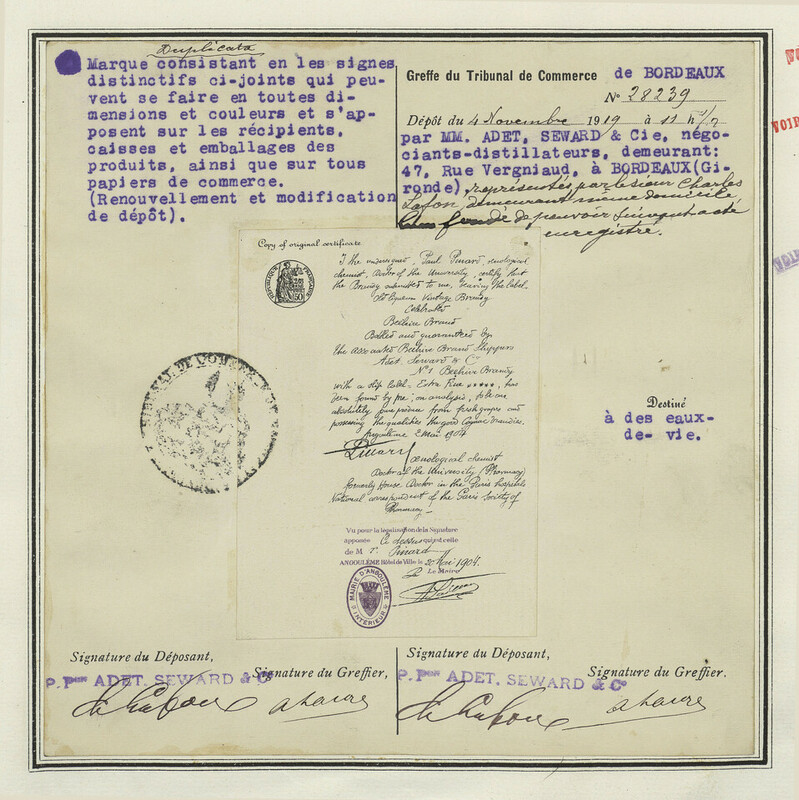 Duplicata
Marque consistant en les signes
distinctifs ci-joints qui peu-
vent se faire en toutes di-
mensions et couleurs et s'ap-
posent sur les récipients,
caisses et emballages des
produits, ainsi que sur tous
papiers de commerce.
(Renouvellement et modification
de dépôt).
Greffe du Tribunal de Commerce de BORDEAUX
N° 28239
Dépôt du 4 Novembre 1919 à 11 h 1/2
par MM. ADET, SEWARD & Cie, négo-
ciants-distillateurs, demeurant:
47, Rue Vergniaud, à BORDEAUX(Gi-
ronde), représentés par le sieur Charles
Lafon demeurant même domicile
fondé de pouvoir suivant acte
enregistré.
VOIR
Copy of original certificate
RÉPUBLIQUE FRANÇAISE
50
I the undersigned, Paul Pinard, œnological
chemist, Doctor of the University, certify that
the Brandy submitted to me, bearing the label
Old Liqueur Vintage Brandy
Celebrated
Beehive Brand
Bottled and guaranteed by
the associated Beehive Brand Shippers
Adet Seward & C°
N°1 Beehive Brandy
with a slip label = Extra Fine *****, has
been found by me, on analysis, to be an
absolutely pure produce from fresh grapes and
possessing the qualities of good Cognac brandies.
Angoulême 2 Mai 1904
Pinard
œnological chemist
Doctor of the University (Pharmacy)
formerly House Doctor in the Paris hospitals
National correspondent of the Paris Society of
Pharmacy
Vu pour la légalisation de la Signature
apposée Ci dessus qui est celle
de M r. Pinard
ANGOULÊME Hôtel de Ville, le 20 Mai 1904.
P Le Maire
MAIRIE D'ANGOULÊME
INTÉRIEUR
TRIBUNAL DE COMMERCE
Destiné
à des eaux-
de-vie.
Signature du Déposant,
Signature du Greffier,
P. Pon ADET, SEWARD & C°
Signature du Déposant,
Signature du Greffier.
P. Pon ADET, SEWARD & C°